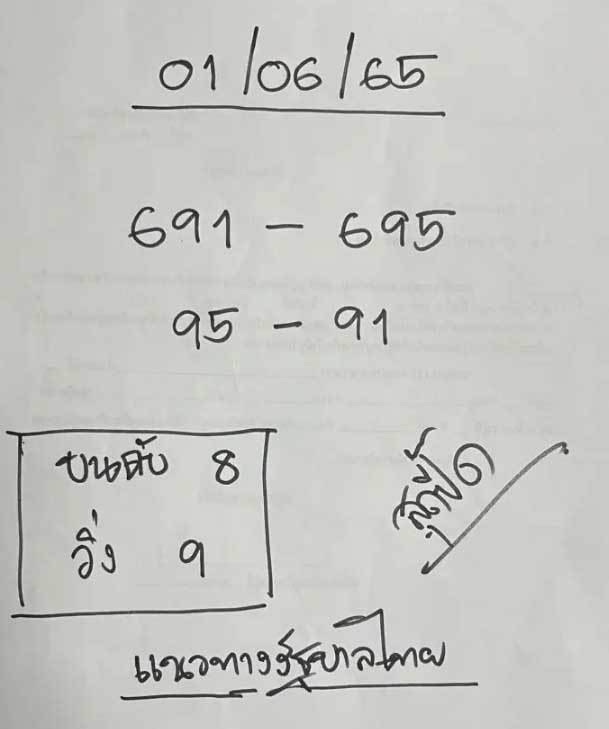 01/06/65
691 - 695
95 - 91
บนดับ 8
วิ่ง 9
สูตรปี๊ด
แนวทางรัฐบาลไทย